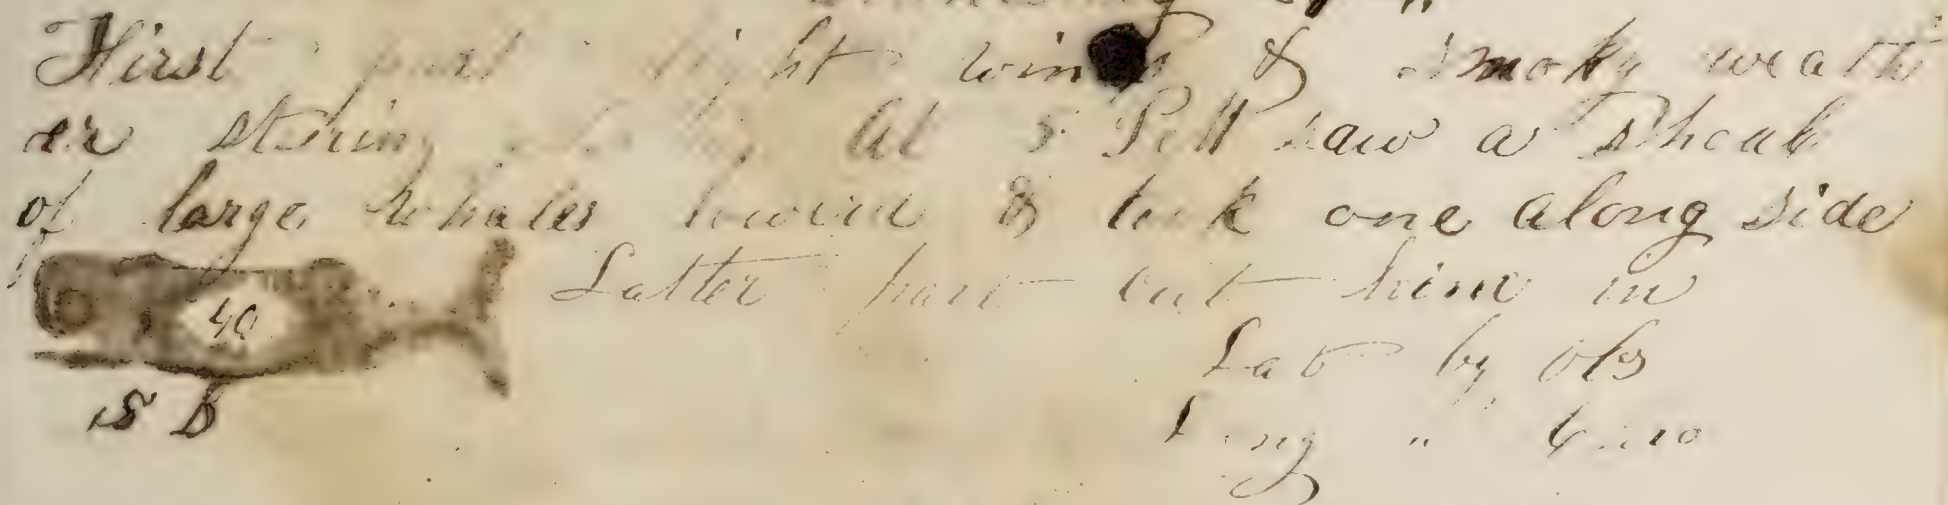 First part light winds & smoky weath
er stering At 5 P M saw a Shoal
of large whales lowered & took one along side
40 Latter part cut him in
S B
Lat by obs
Long " Chro